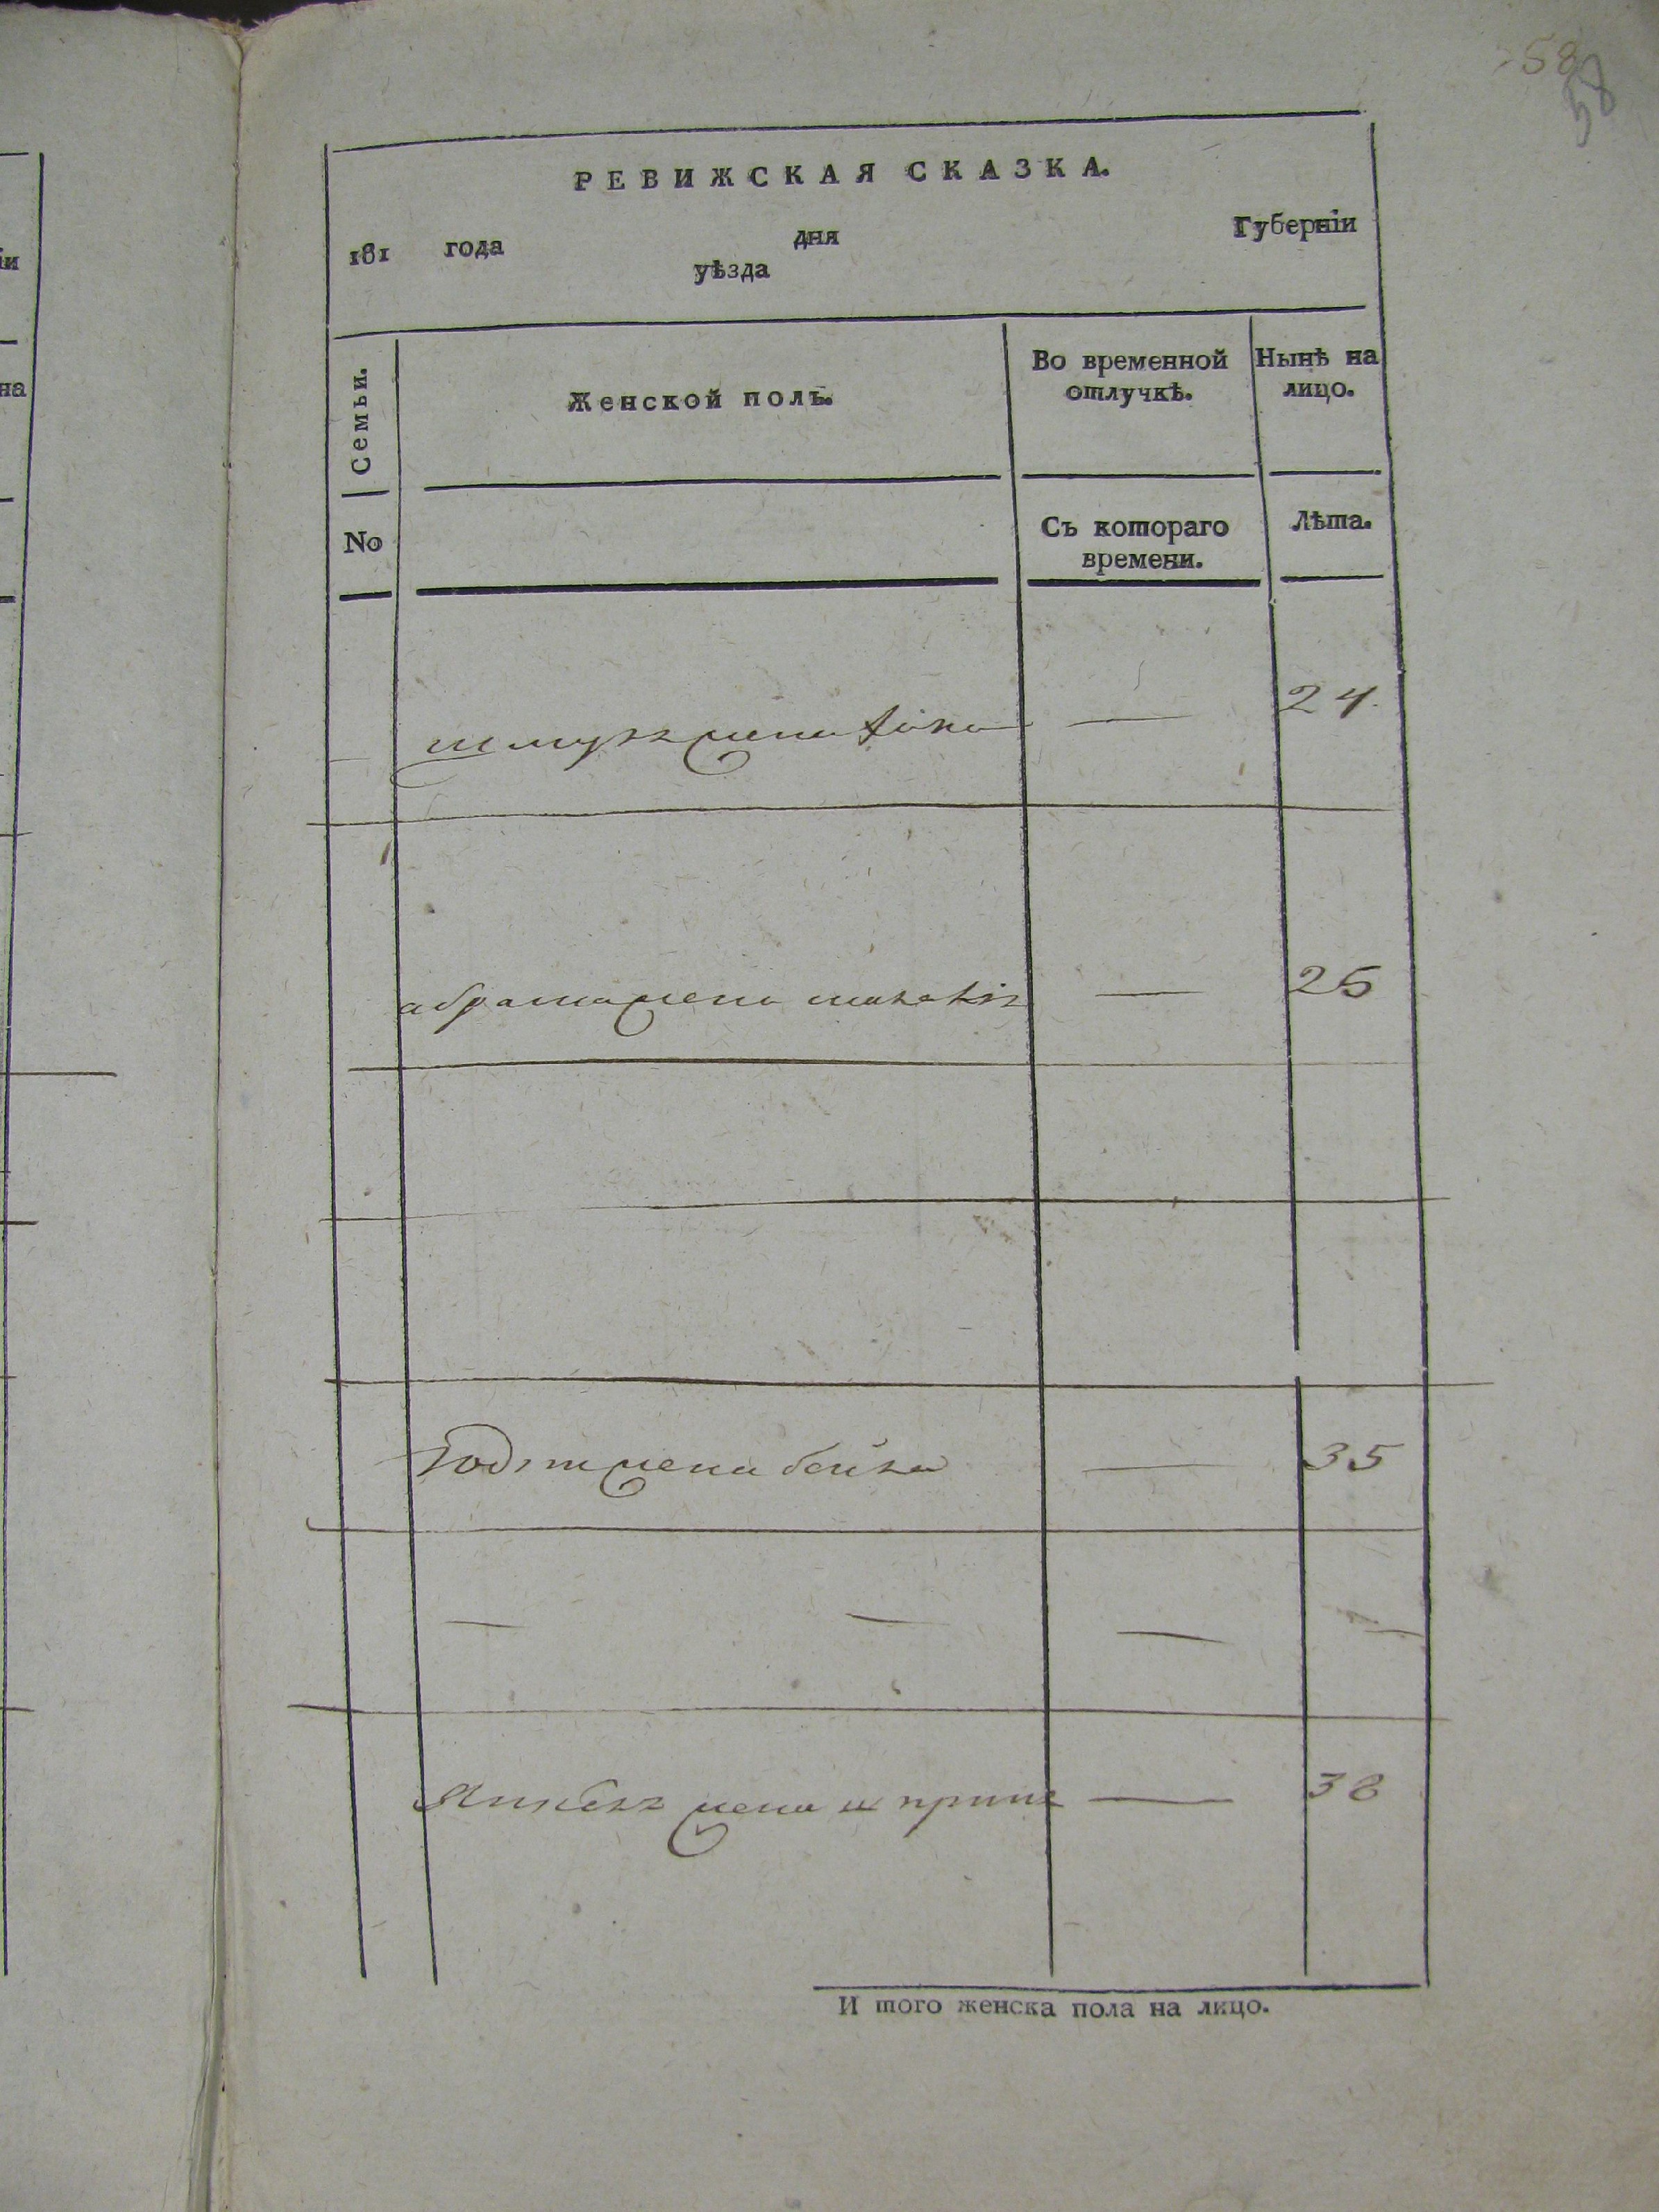 58
58
РЕВИЖСКАЯ СКАЗКА.
181 года дня Губерніи
уѣзда
Семьи.
Женской полъ.
Во временной отлучкѣ.
Нынѣ на лицо.
No
Съ котораго времени.
Лѣта.
жена — 24
абрама жена — 25
жена бейла — 35
— — — —
жена шпринца — 38
И того женска пола на лицо.
іи
на